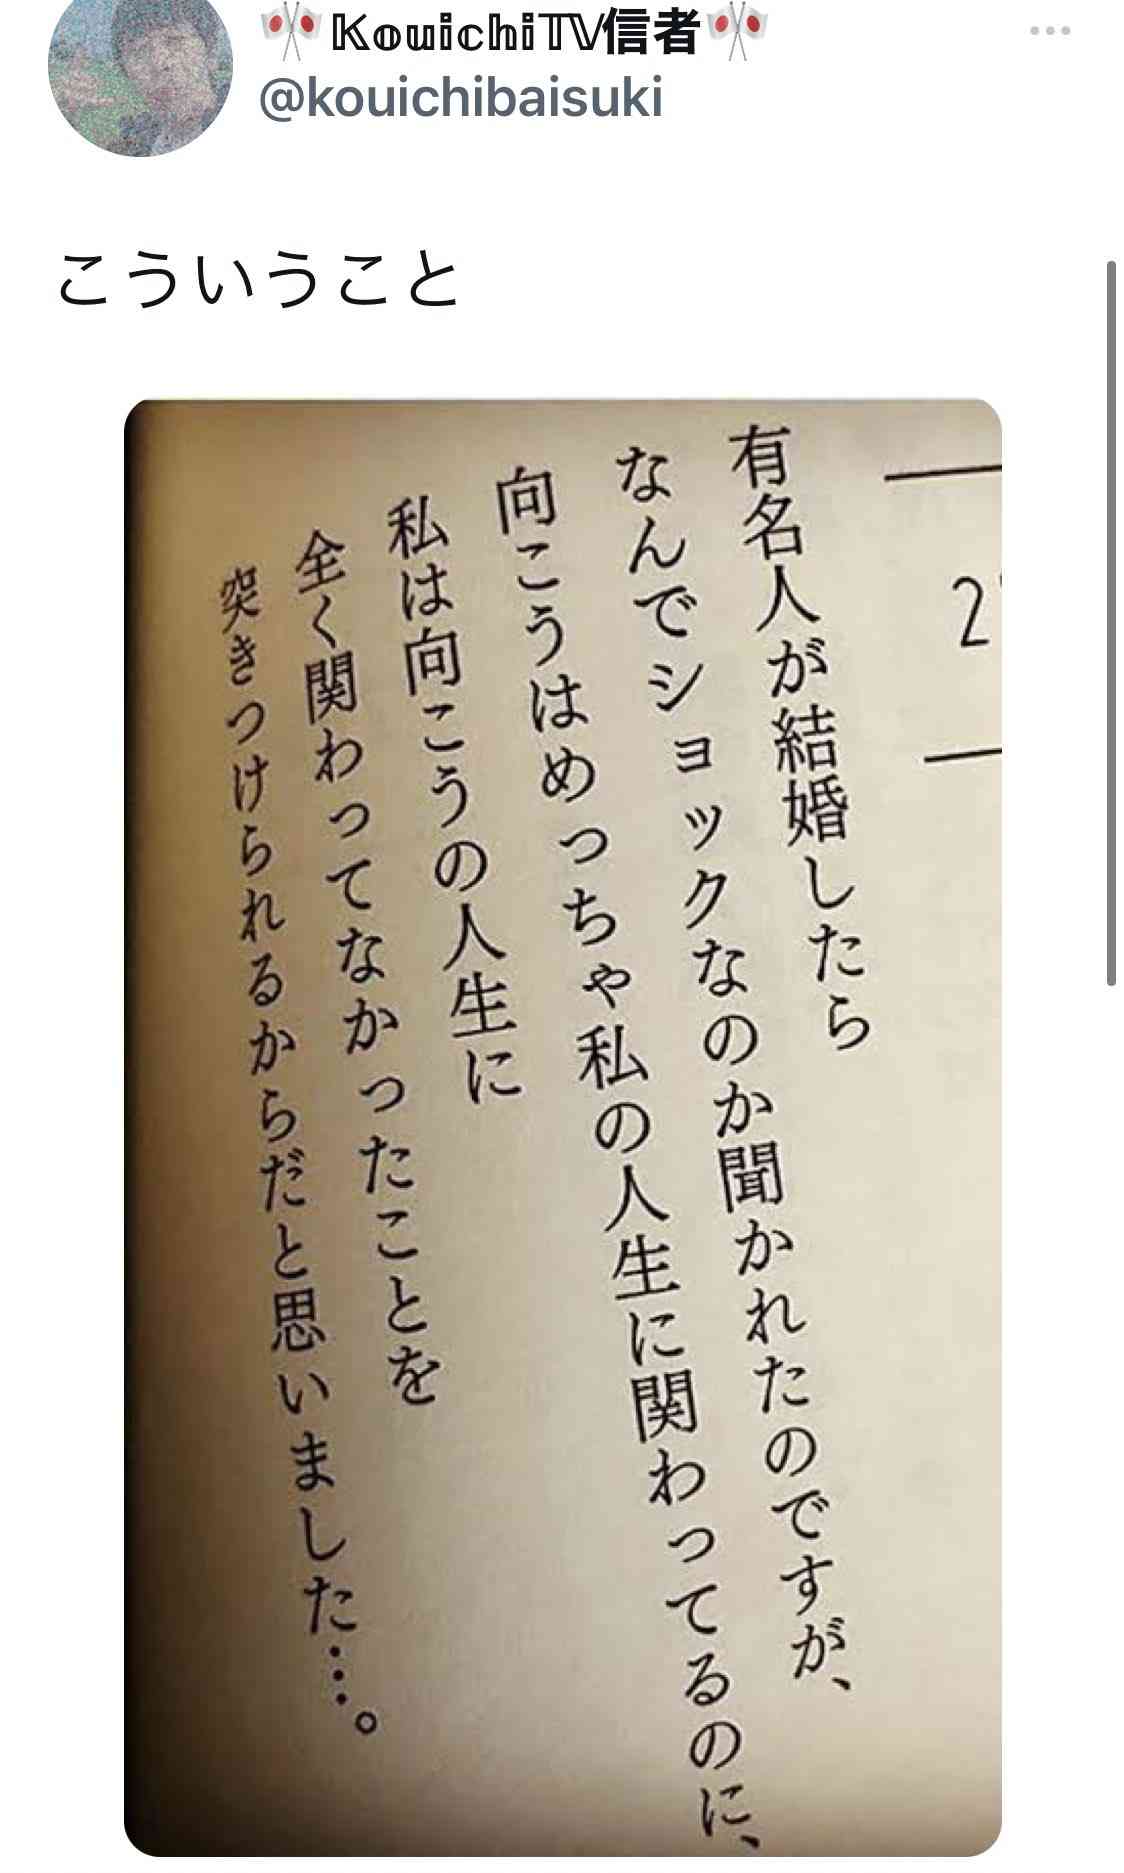 🎌KouichiTV信者🎌
@kouichibaisuki
こういうこと
2
有名人が結婚したら
なんでショックなのか聞かれたのですが、
向こうはめっちゃ私の人生に関わってるのに、
私は向こうの人生に
全く関わってなかったことを
突きつけられるからだと思いました…。